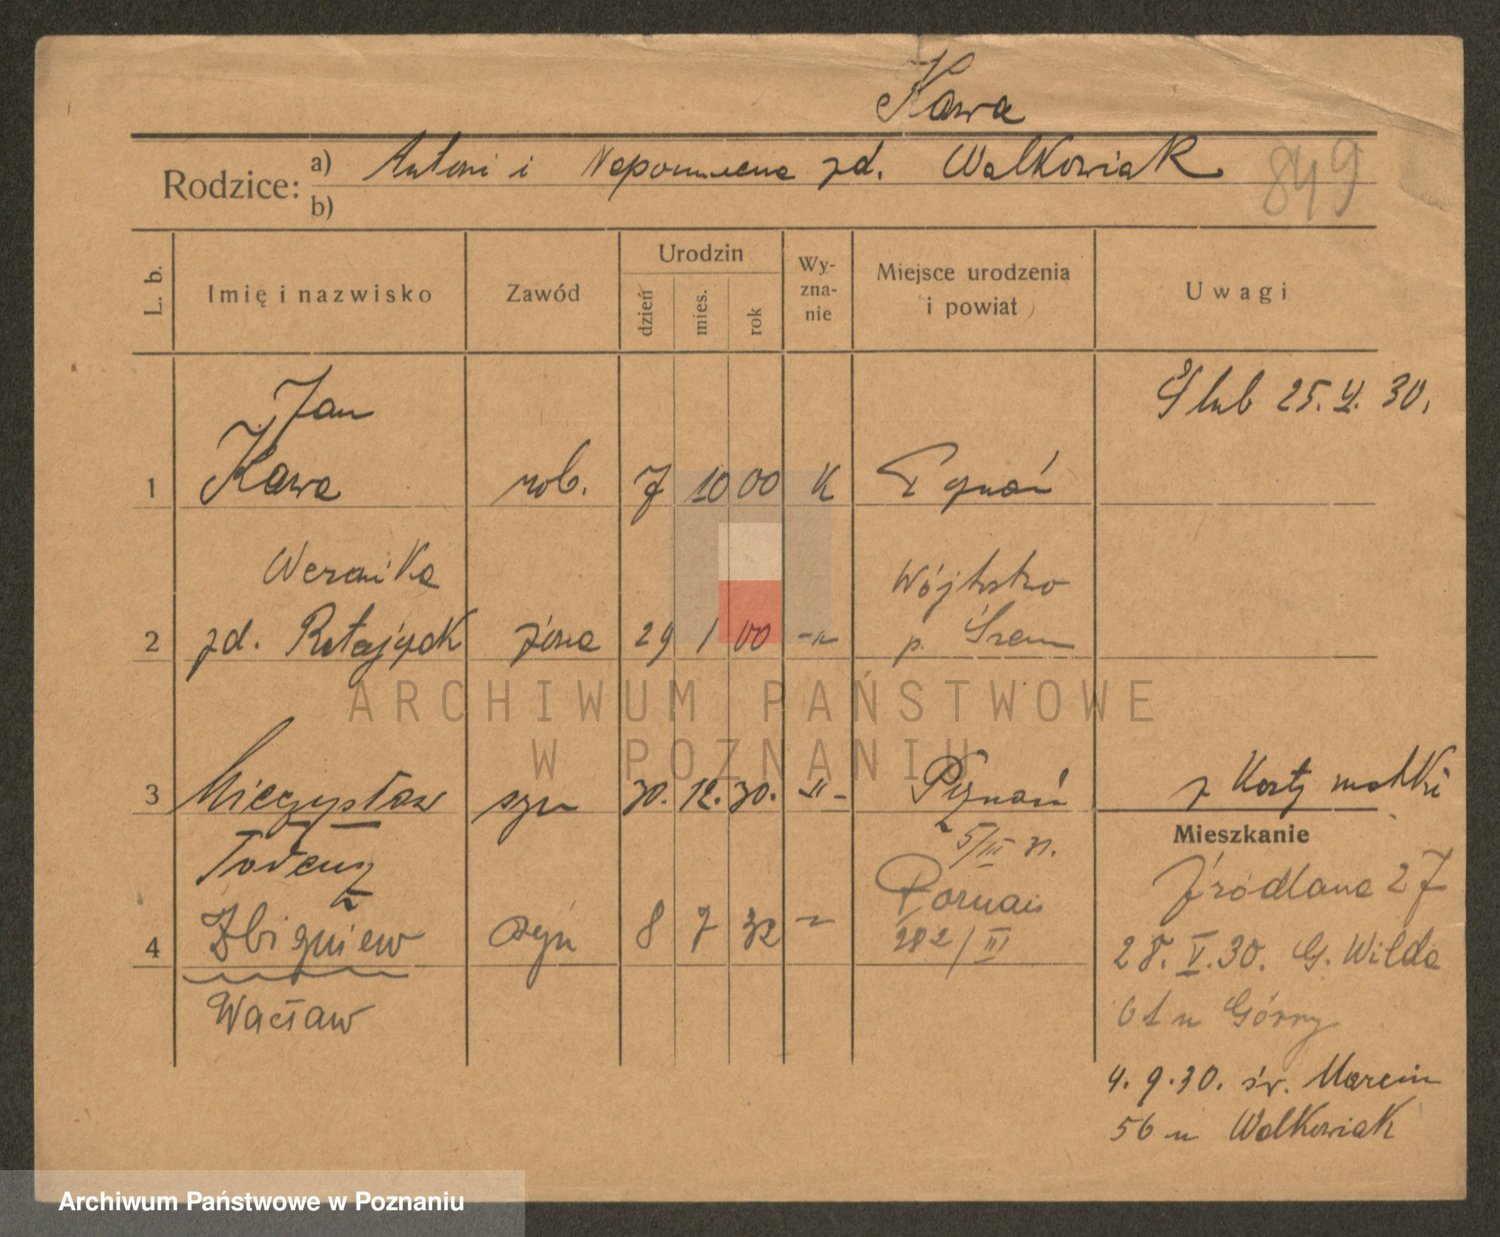 Kawa
Rodzice: a) Antoni i Nepomucena zd. Walkowiak
b)
849
L. b. Imię i nazwisko Zawód Urodzin dzień mies. rok Wy-zna-nie Miejsce urodzenia i powiat Uwagi
Ślub 25. V. 30.
Jan
1 Kawa rob. 7 10 00 K Poznań
Weronika Wójtostwo
2 zd. Ratajczak żona 29 1 00 -"- p. Śrem
ARCHIWUM PAŃSTWOWE
W POZNANIU
3 Mieczysław syn 30. 12. 30. -"- Poznań z Karty matki
5/III 31.
Mieszkanie
Tadeusz
Źródlana 27
Poznań
4 Zbigniew syn 8 7 32 282/III
28. V. 30. G. Wilda
Wacław
61 u Górny
4. 9. 30. św. Marcin
56 u Walkowiak
Archiwum Państwowe w Poznaniu